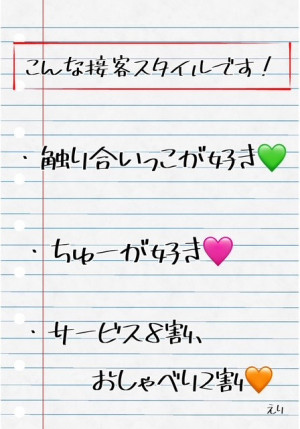 こんな接客スタイルです！
・触り合いっこが好き💚
・ちゅーが好き🩷
・サービス8割、
おしゃべり2割🧡
えり